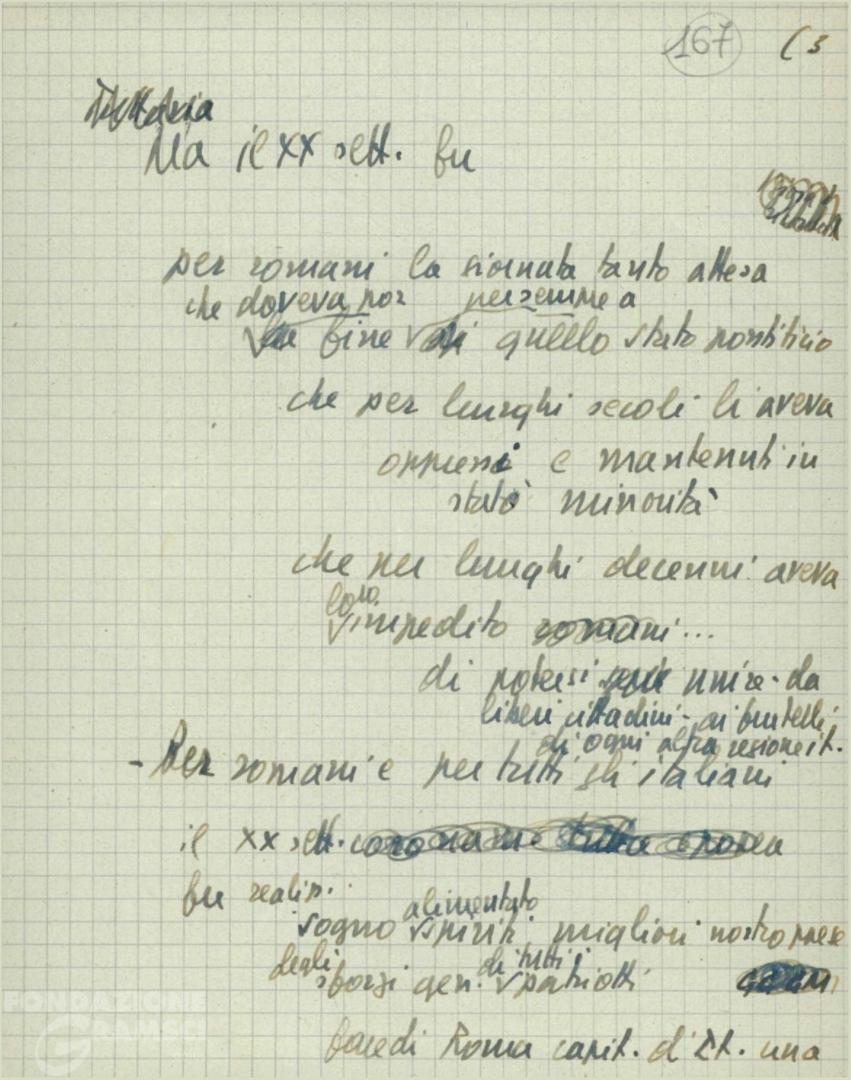 167 (3
Tuttavia
Ma il XX sett. fu
per romani la giornata tanto attesa
che doveva por per sempre a
la fine di quello stato pontificio
che per lunghi secoli li aveva
oppressi e mantenuti in
stato minorità
che per lunghi decenni aveva
loro
impedito romani...
di potersi unire - da
liberi cittadini - ai fratelli
di ogni altra regione it.
- Per romani e per tutti gli italiani
il XX sett. coronam. tutta epopea
fu realiz.
alimentato
sogno spiriti migliori nostro paese
degli di tutti i
sforzi gen. patriotti
fare di Roma capit. d'It. una
FONDAZIONE
GRAMSCI